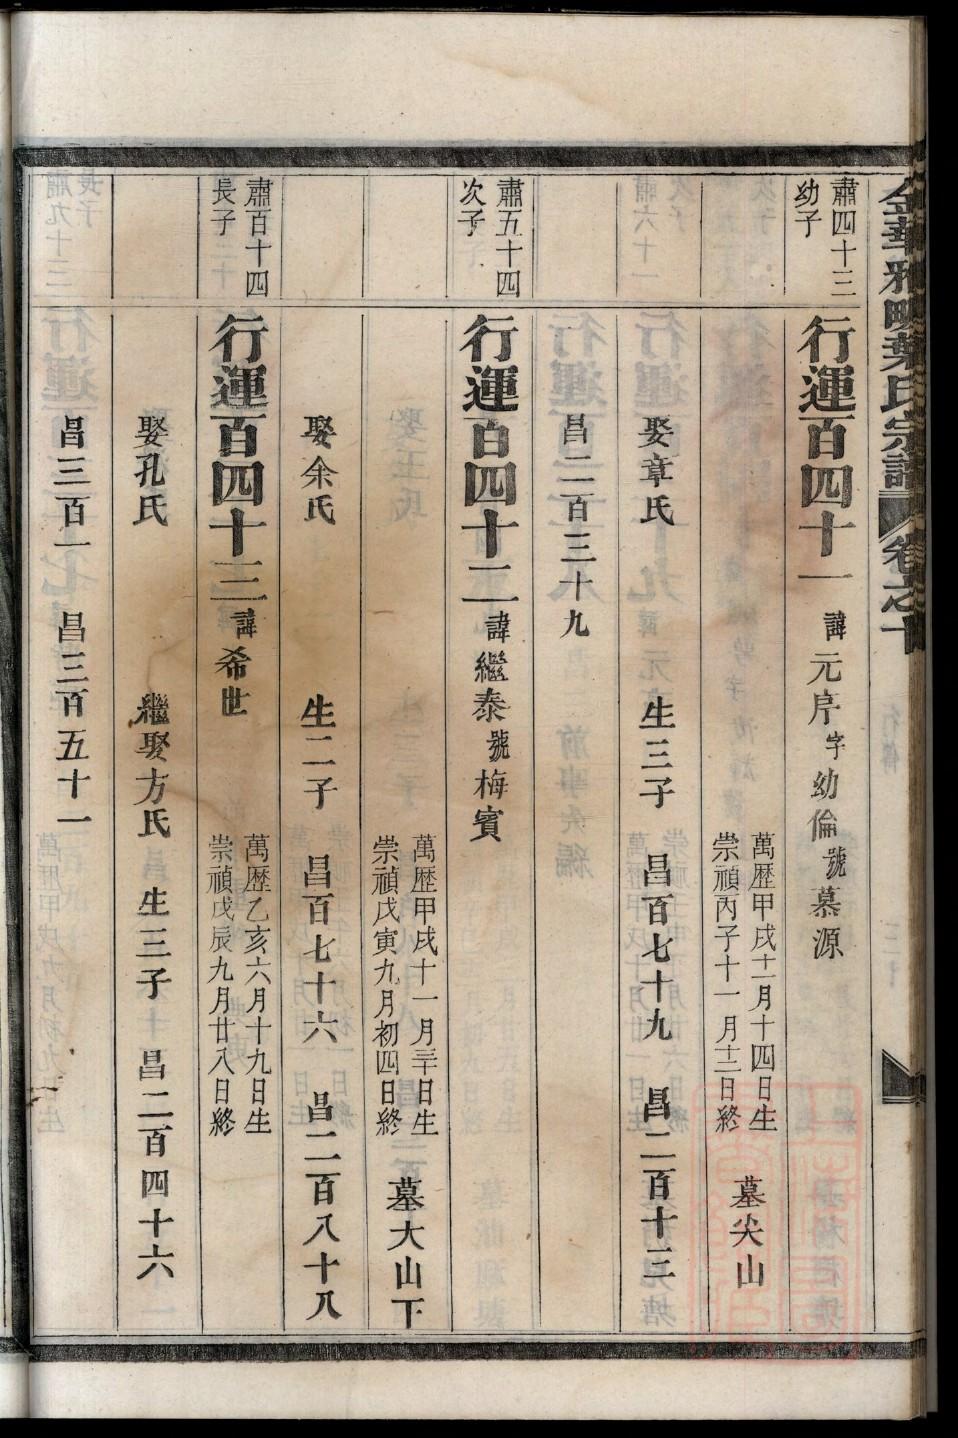 金華雅畈葉氏宗譜 卷之十
肅四十三
幼子
行運百四十一 諱元序字幼倫號慕源
萬歷甲戌十一月十四日生
崇禎丙子十一月十二日終
墓尖山
娶章氏 生三子 昌百七十九 昌二百十三
昌二百三十九
肅五十四
次子
行運百四十二 諱繼泰號梅賓
萬歷甲戌十一月三十日生
崇禎戊寅九月初四日終
墓大山下
娶余氏 生二子 昌百七十六 昌二百八十八
肅百十四
長子
行運百四十三 諱希世
萬歷乙亥六月十九日生
崇禎戊辰九月廿八日終
娶孔氏 繼娶方氏 生三子 昌二百四十六
昌三百一 昌三百五十一